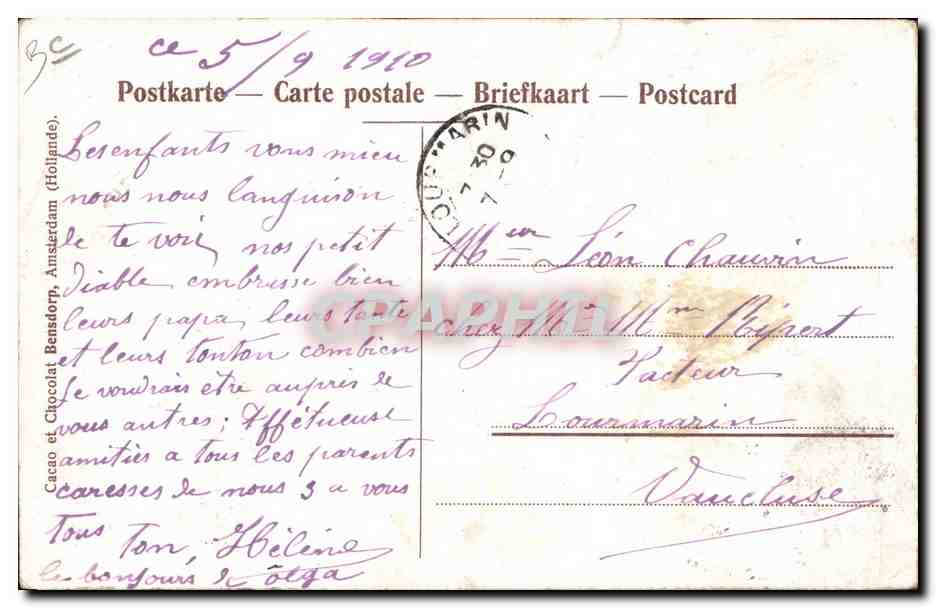 Bc
ce 5/9 1910
Postkarte — Carte postale — Briefkaart — Postcard
Cacao et Chocolat Bensdorp, Amsterdam (Hollande).
LOURMARIN
7 30
7 - 9
Les enfants vons mieu
nous nous languison
de te voir, nos petit
diable embrisse bien
leurs papa, leurs tante
et leurs tonton combien
Je voudrais etre aupris de
vous autres; Affétueuse
amitiés a tous les parents
caresses de nous 3 a vous
tous
ton, Hélène
les bonjours de olga
Meur Léon Chauvin
chez Mr Mm Ripert
Facteur
Lourmarin
Vaucluse
CPAPHIL